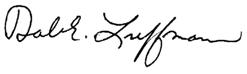 Dale E. Luffman